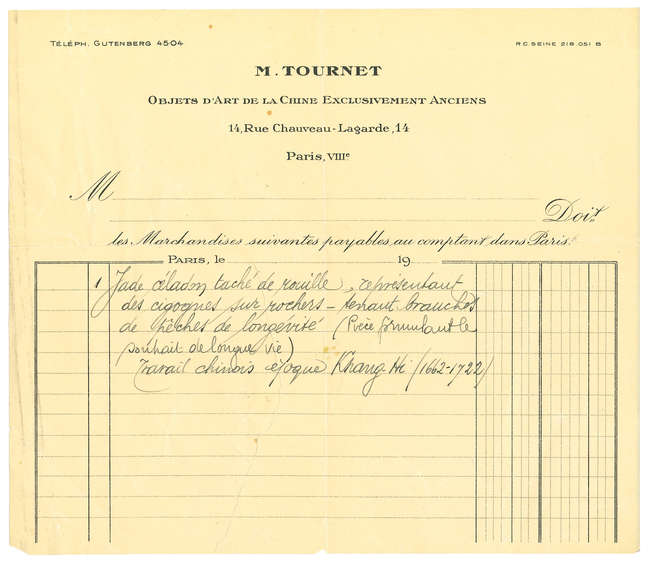 TÉLÉPH. GUTENBERG 45-04
R.C. SEINE 218.051 B
M. TOURNET
OBJETS D'ART DE LA CHINE EXCLUSIVEMENT ANCIENS
14, Rue Chauveau-Lagarde, 14
Paris, VIIIe
M
Doit
les Marchandises suivantes payables au comptant dans Paris.
PARIS, le 19
1 Jade céladon taché de rouille, représentant
des cigognes sur rochers - tenant branches
de pêches de longévité (Pièce formulant le
souhait de longue vie)
Travail chinois époque Khang Hi (1662-1722)